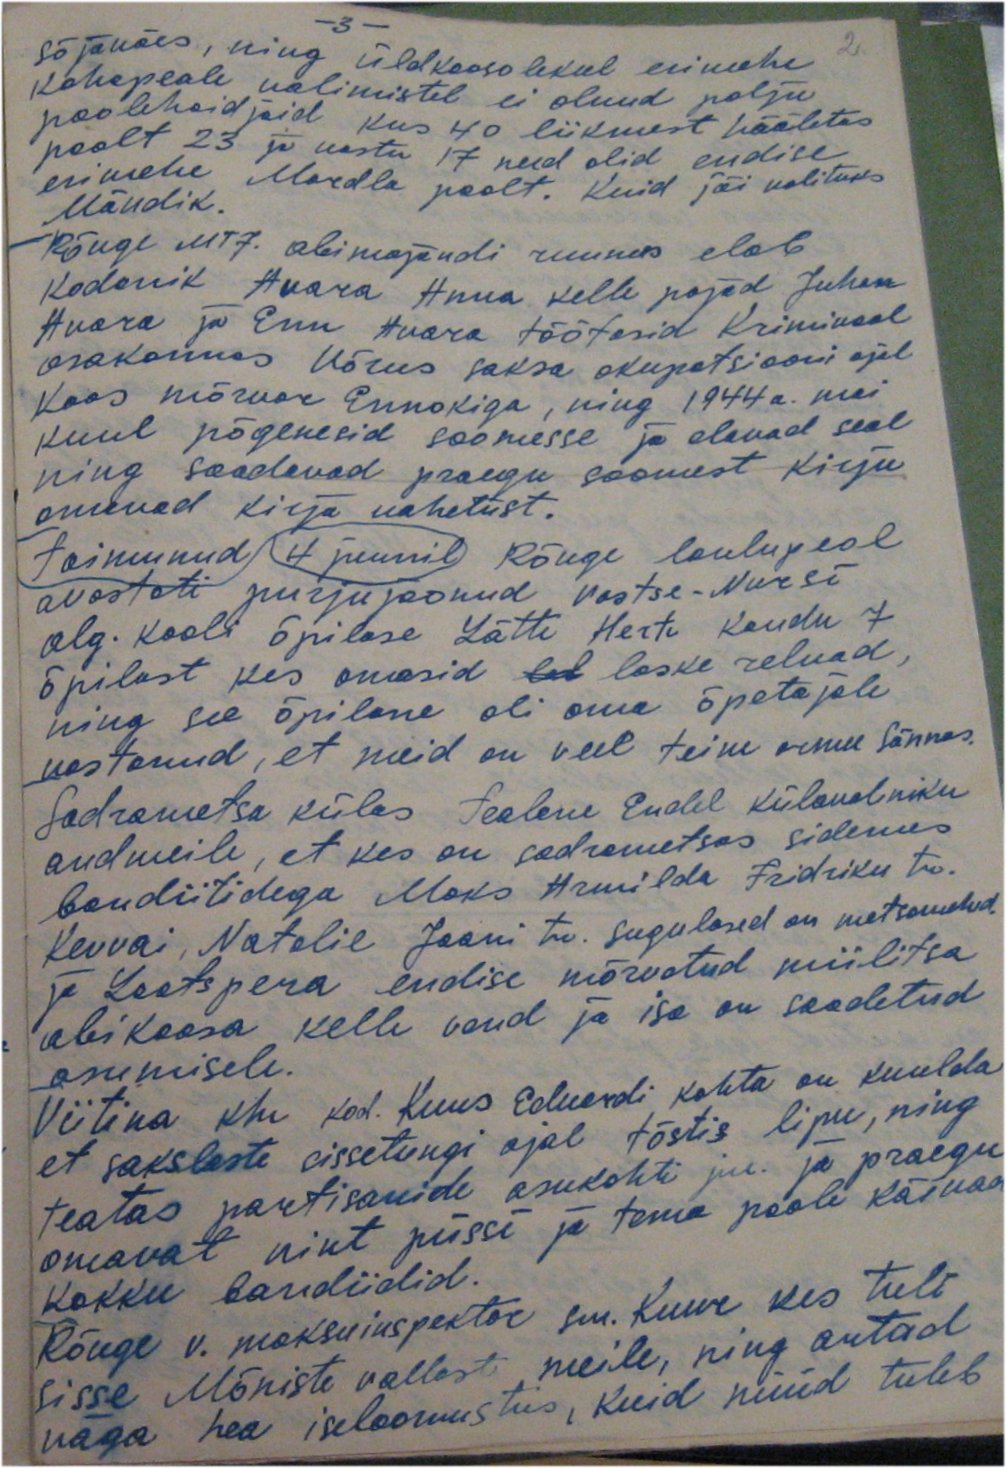 -3-
2.
sõjaväes, ning üldkoosolekul esimehe
kohapeale valimistel ei olnud palju
poolehoidjaid kus 40 liikmest hääletas
poolt 23 ja vastu 17 need olid endise
esimehe Mardla poolt. Kuid jäi valituks
Mändik.
Rõuge MTJ. abimajandi ruumes elab
Kodanik Avara Anna kelle pojad Juhan
Avara ja Enn Avara töötasid Kriminaal
osakonnas Võrus saksa okupatsiooni ajal
koos mõrvar Ennokiga, ning 1944 a. mai
kuul põgenesid soomesse ja elavad seal
ning saadavad praegu soomest kirju
omavad kirja vahetust.
Toimunud 4 juunil Rõuge laulupeol
avastati purjujoonud Vastse-Nursi
alg. kooli õpilase Lätte Herta kaudu 7
õpilast kes omasid laske relvad,
ning see õpilane oli oma õpetajale
vastanud, et meid on veel teine osa Sännas.
Sadrametsa külas Tealene Endel külavoliniku
andmeile, et kes on sadrametsas sidemes
bandiitidega Maks Armilda Fridriku tr.
Kevvai, Natalie Jaani tr. sugulased on metsamehed.
ja Laatspera endise mõrvatud miilitsa
abikaasa kelle vend ja isa on saadetud
asumisele.
Viitina khn kod. Kuus Eduardi kohta on kuulda
et sakslaste sissetungi ajal tõstis lipu, ning
teatas partisanide asukohti ja praegu
omavat nint püssi ja tema poole käivad
kokku bandiidid.
Rõuge v. maksuinspektor sm. Kuure kes tuli
sisse Mõniste vallast meile, ning antud
väga hea iseloomustus, kuid nüüd tuleb